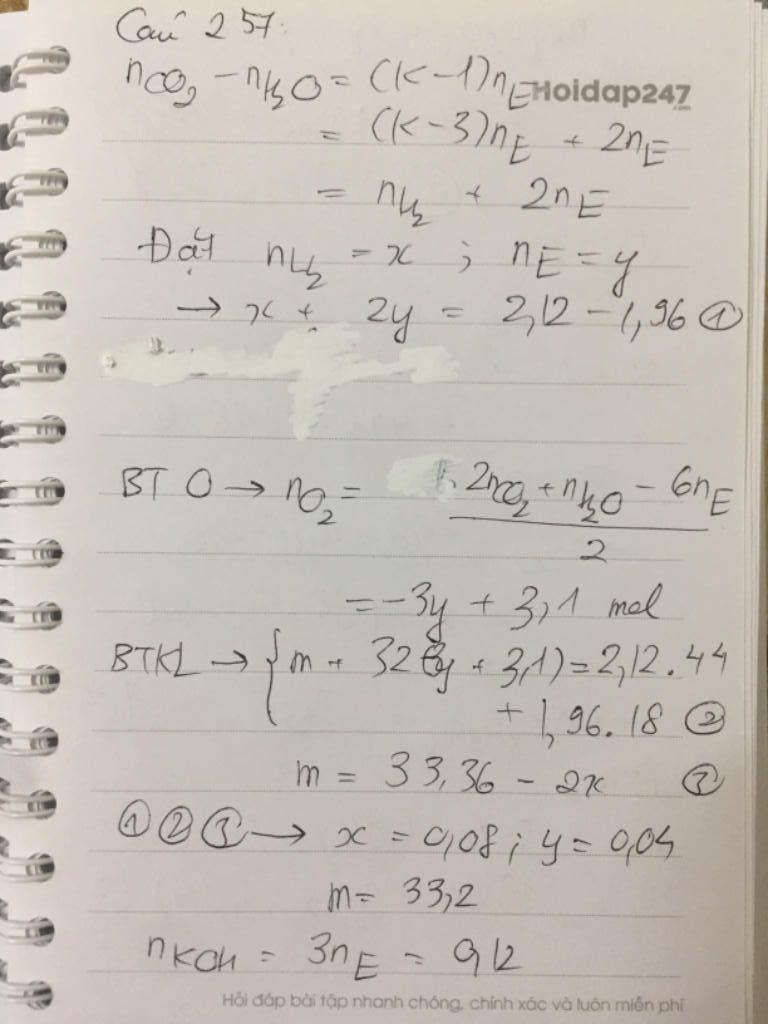 Câu 257:
nCO₂ - nH₂O = (k-1)nE
Hoidap247
.com
= (k-3)nE + 2nE
= nH₂ + 2nE
Đặt nH₂ = x ; nE = y
→ x + 2y = 2,12 - 1,96 ①
BT O → nO₂ = (2nCO₂ + nH₂O - 6nE)/2
= -3y + 3,1 mol
BTKL → { m + 32(-3y + 3,1) = 2,12.44
+ 1,96.18 ②
m = 33,36 - 2x ③
①②③ → x = 0,08 ; y = 0,04
m = 33,2
nKOH = 3nE = 0,12
Hỏi đáp bài tập nhanh chóng, chính xác và luôn miễn phí